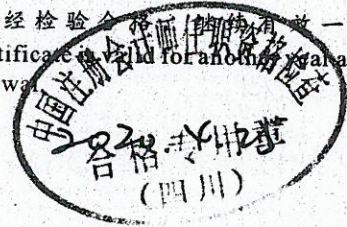 经检验合格 继续有效一
tificate is valid for another year a
wal
中国注册会计师任职资格检查
合格专用章
(四川)